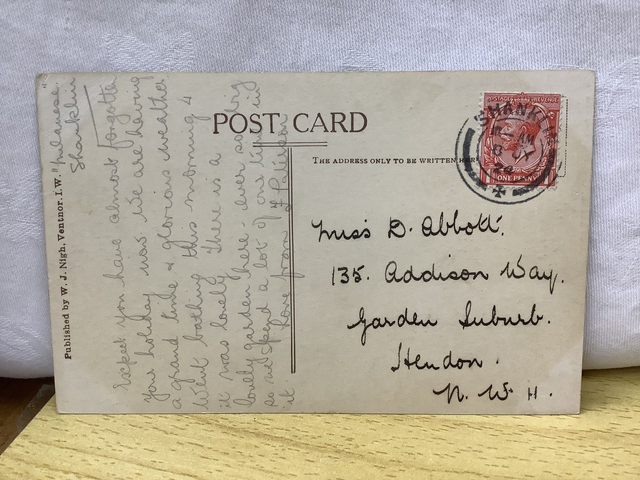 POST CARD
THE ADDRESS ONLY TO BE WRITTEN HERE
Published by W. J. Nigh, Ventnor, I.W.
Shanklin
Expect you have almost forgotten
your holiday now. We are having
a grand time & glorious weather
Went bathing this morning &
it was lovely. There is a
lovely garden here - ever so big
so we spend a lot of our time in
it. Love from
Miss D. Abbott.
135. Addison Way.
Garden Suburb.
Hendon.
N. W. 4.
SHANKLIN
AM
POSTAGE REVENUE
ONE PENNY